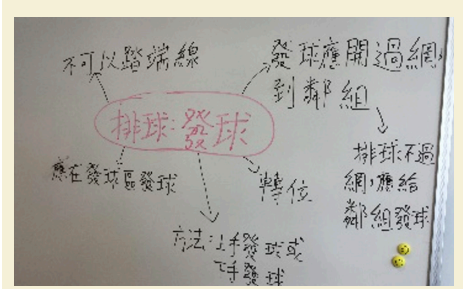 不可以踏端線
發球應開過網,
到鄰組
排球:發球
排球不過
網,應給
鄰組發球
應在發球區發球
轉位
方法:上手發球或
下手發球